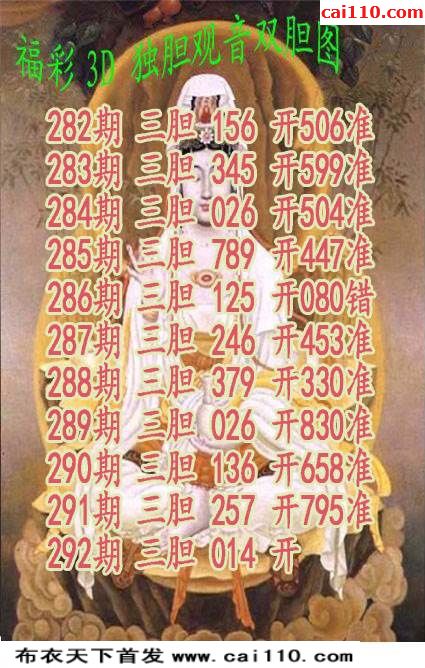 cai110.com
福彩 3D 独胆观音双胆图
282期 三胆 156 开506准
283期 三胆 345 开599准
284期 三胆 026 开504准
285期 三胆 789 开447准
286期 三胆 125 开080错
287期 三胆 246 开453准
288期 三胆 379 开330准
289期 三胆 026 开830准
290期 三胆 136 开658准
291期 三胆 257 开795准
292期 三胆 014 开
布衣天下首发 www.cai110.com